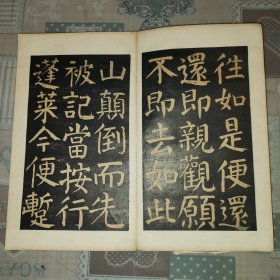 往如是便還
還即親觀願
不即去如此
山顛倒而先
被記當按行
蓬莱今便蹔